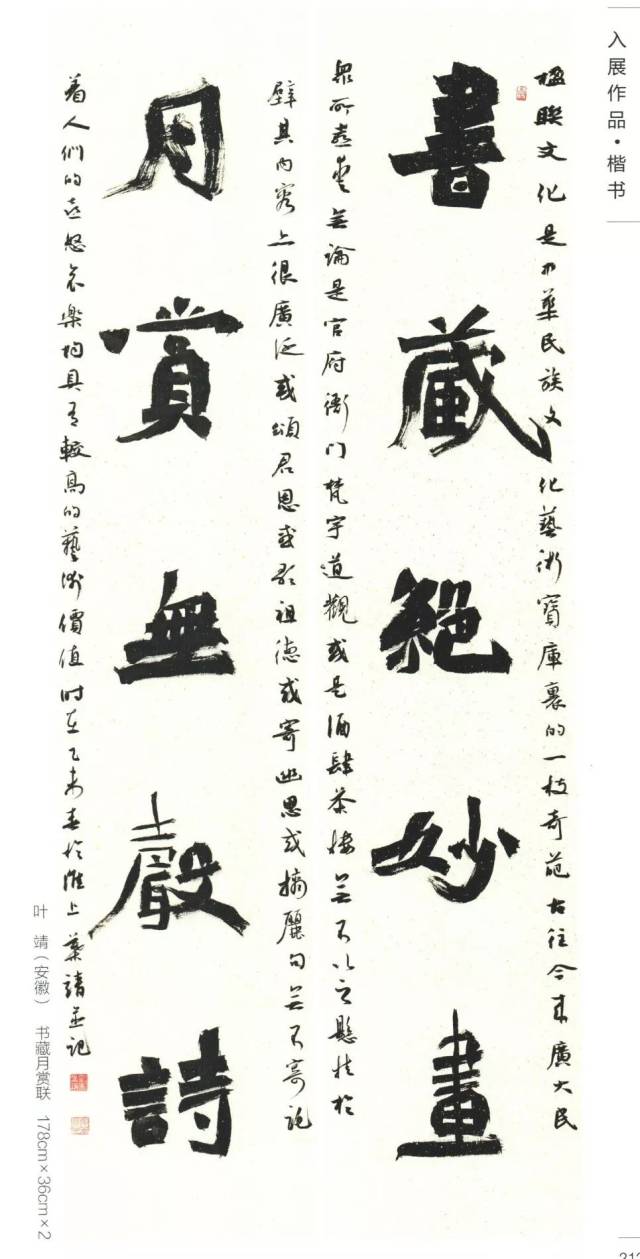 入展作品·楷书
楹聯文化是中華民族文化藝術寶庫裏的一枝奇葩古往今來廣大民
書藏絕妙畫
眾所喜愛無論是官府衙门梵宇道觀或是酒肆茶樓無不以之懸挂於
壁其內容上很廣泛或頌君恩或祖德或寄幽思或摛麗句無不寄託
月賞無聲詩
着人們的喜怒哀樂均具有較高的藝術價值时在乙未春於淮上葉靖並記
叶 靖（安徽） 书藏月赏联 178cm×36cm×2